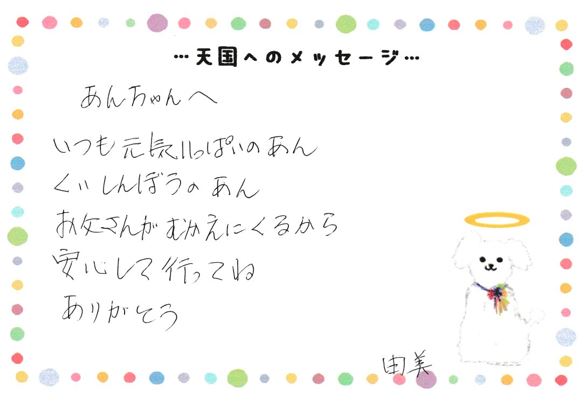 …天国へのメッセージ…
あんちゃんへ
いつも元長いっぱいのあん
くいしんぼうのあん
お父さんがむかえにくるから
安心して行ってね
ありがとう
由美